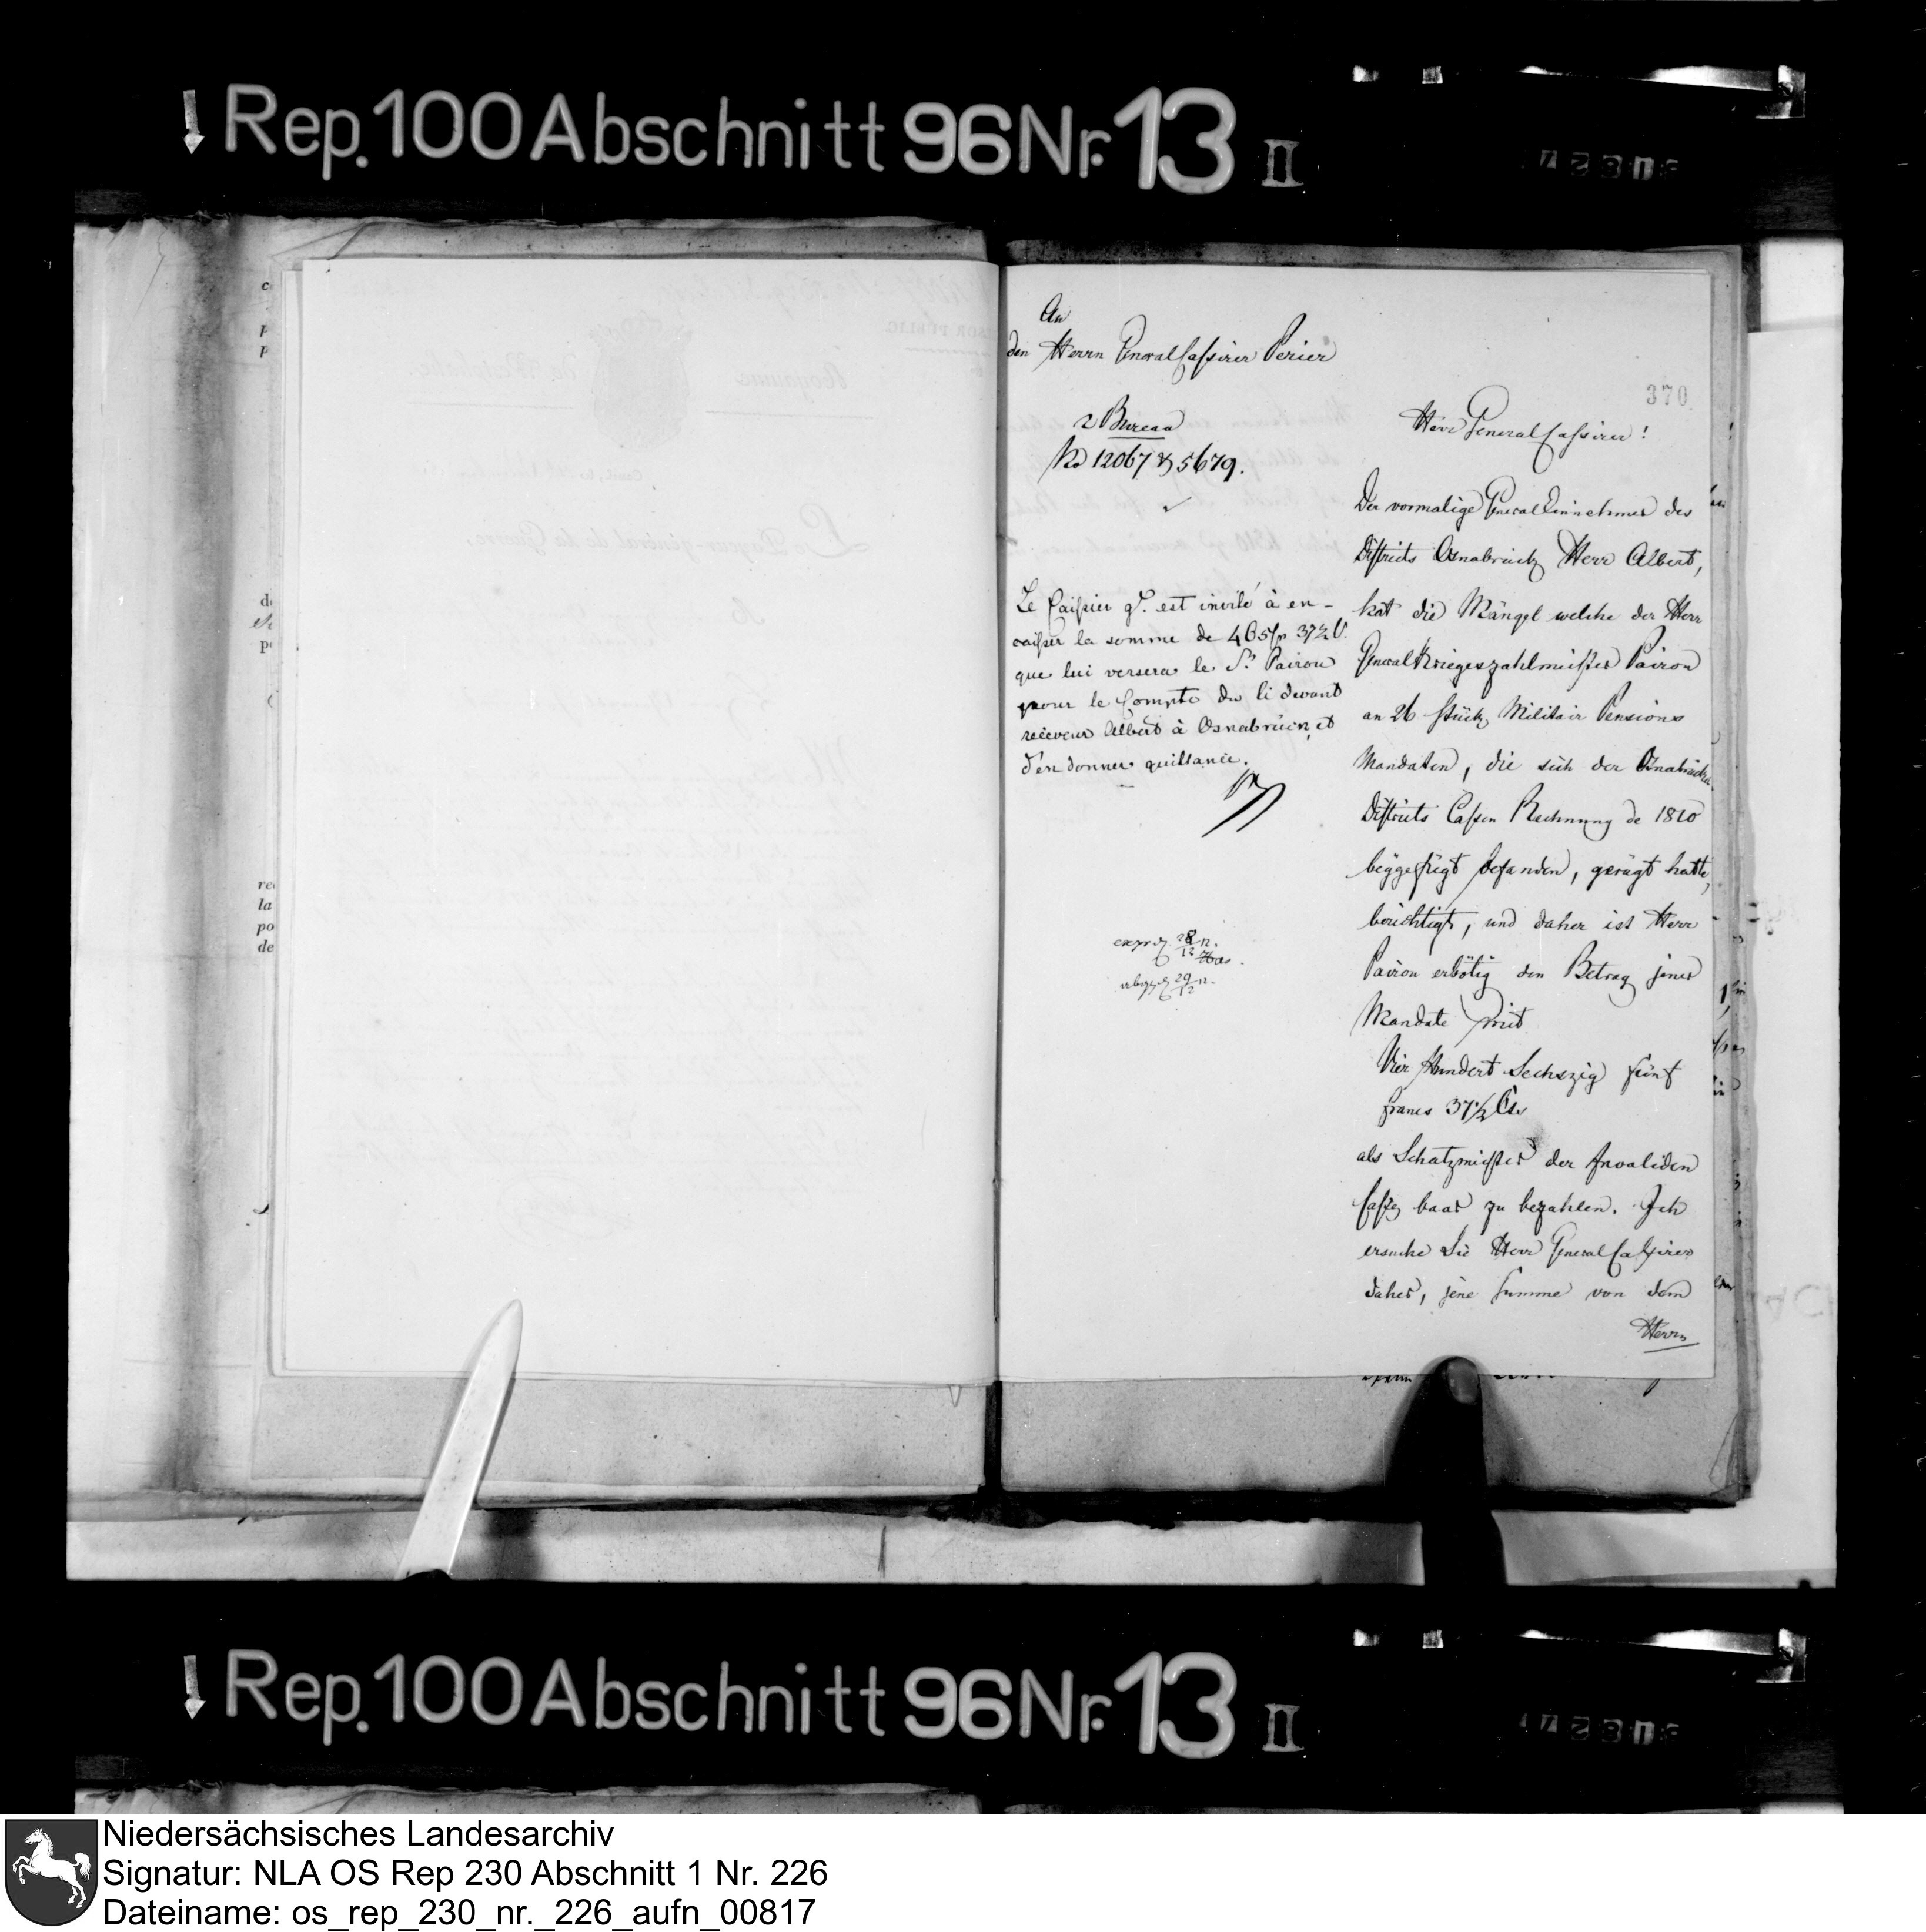 Rep. 100 Abschnitt 96 Nr. 13 II
An
den Herrn General Cassirer Perier
370
2 Bureau
No 12067 & 5679.
Le Caissier gl. est invité à en-
caisser la somme de 465 fr 37½ C.
que lui versera le Sr. Pairou
pour le Compte du Ci devant
réceveur Albert à Osnabrück, et
d'en donner quittance.
28
12
29
12
Herr General Cassirer!
Der vormalige General Einnehmer des
Districts Osnabrück Herr Albert,
hat die Mängel welche der Herr
General Kriegeszahlmeister Pairou
an 26 Stück Militair Pensions
Mandaten, die sich der Osnabrücker
Districts Cassen Rechnung de 1810
beygefügt befanden, gerügt hatte,
berichtigt, und daher ist Herr
Pairou erbötig den Betrag jener
Mandate mit
Vier Hundert Sechszig fünf
francs 37½ Cts
als Schatzmeister der Invaliden
Casse baar zu bezahlen. Ich
ersuche Sie Herr General Cassirer
daher, jene Summe von dem
Herrn
Rep. 100 Abschnitt 96 Nr. 13 II
Niedersächsisches Landesarchiv
Signatur: NLA OS Rep 230 Abschnitt 1 Nr. 226
Dateiname: os_rep_230_nr._226_aufn_00817